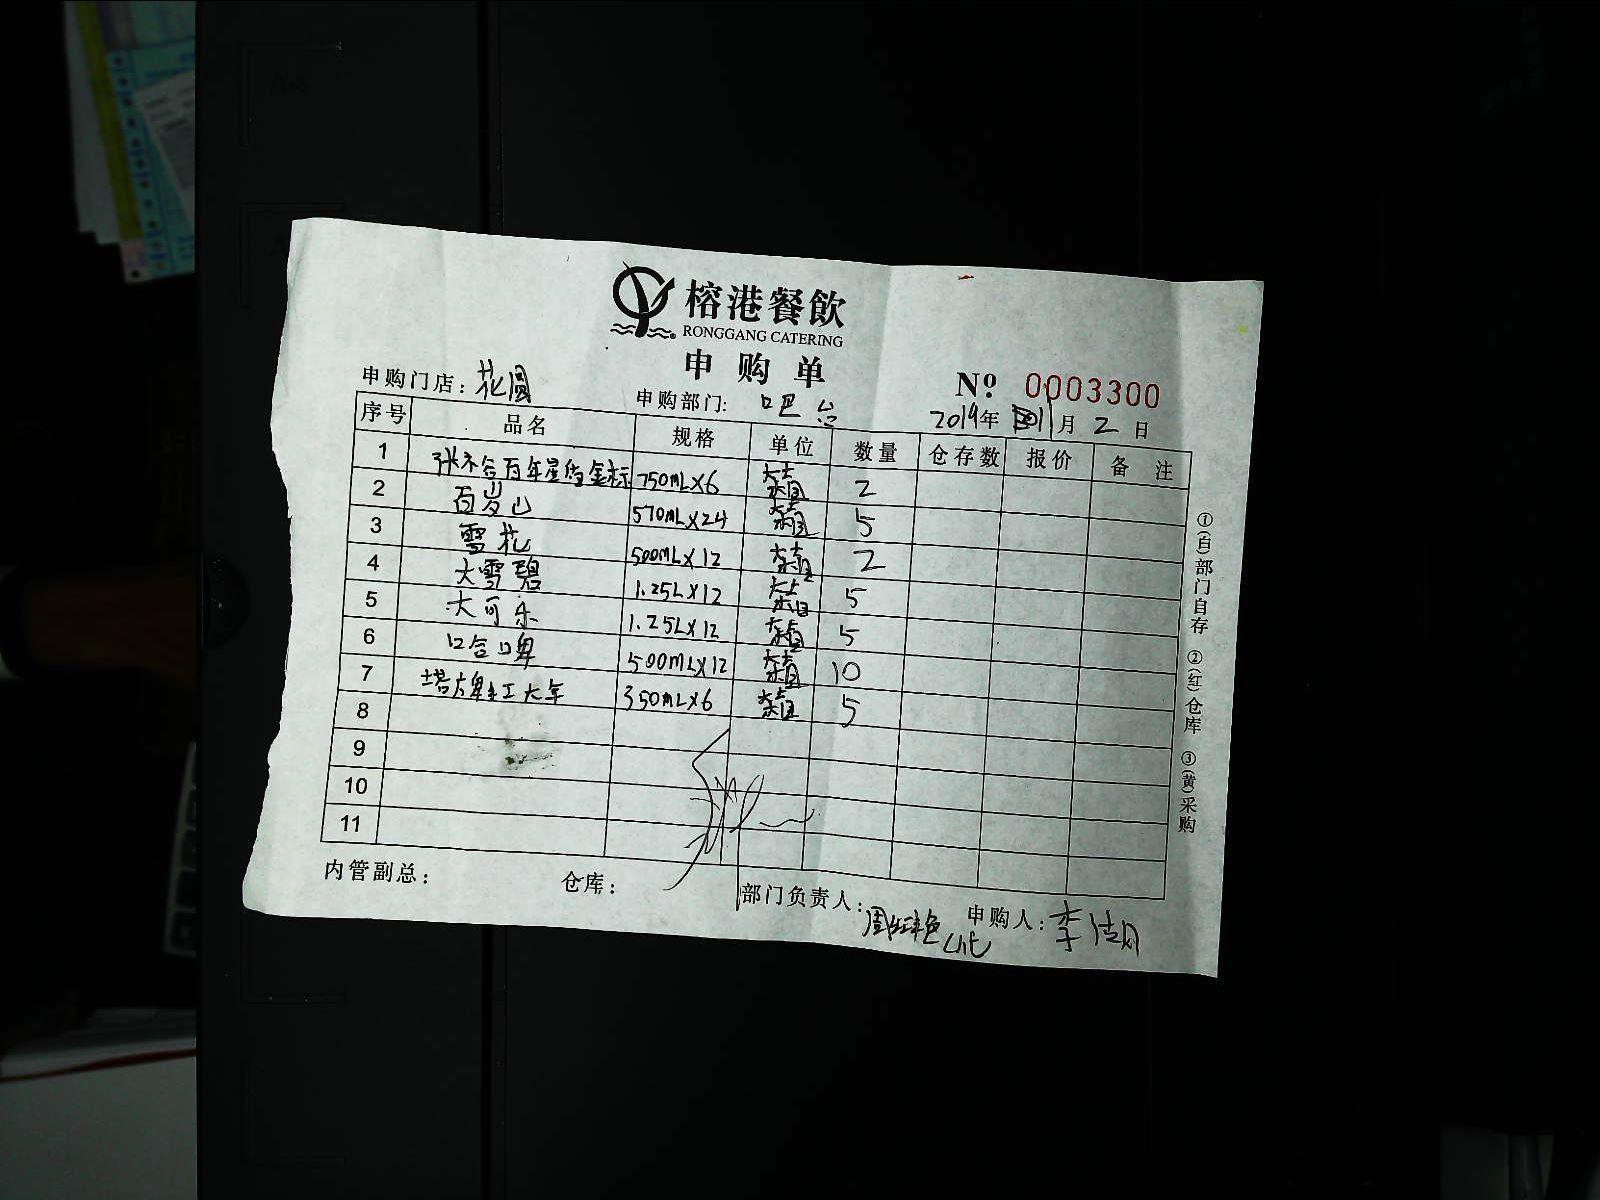 榕港餐飲
RONGGANG CATERING
申购单
申购门店：花圆 申购部门：吧台 Nº 0003300
2019年11月2日
序号 品名 规格 单位 数量 仓存数 报价 备注
1 张裕百年 金标 750mL×6 箱 2
2 百岁山 570mL×24 箱 5
3 雪花 500mL×12 箱 2
4 大雪碧 1.25L×12 箱 5
5 大可乐 1.25L×12 箱 5
6 哈啤 500mL×12 箱 10
7 塔牌手工大年 350mL×6 箱 5
8
9
10
11
内管副总： 仓库： 部门负责人： 申购人：李
①(白)部门自存 ②(红)仓库 ③(黄)采购